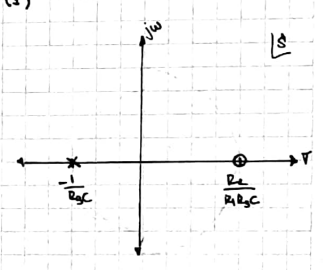 jω
S
σ
-1/R3C
R2/R1R3C